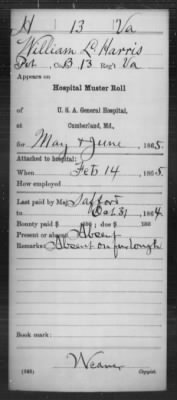 H 13 Va
William L. Harris
Pvt., Co. B, 13 Reg't Va
Appears on
Hospital Muster Roll
of
U. S. A. General Hospital,
at
Cumberland, Md.,
for May & June, 1865
Attached to hospital:
When Feb 14, 1865
How employed
Last paid by Maj. Safford
to Oct 31, 1864
Bounty paid $ 100; due $ 100
Present or absent Absent
Remarks: Absent on furlough
Book mark:
Weaver
Copyist.